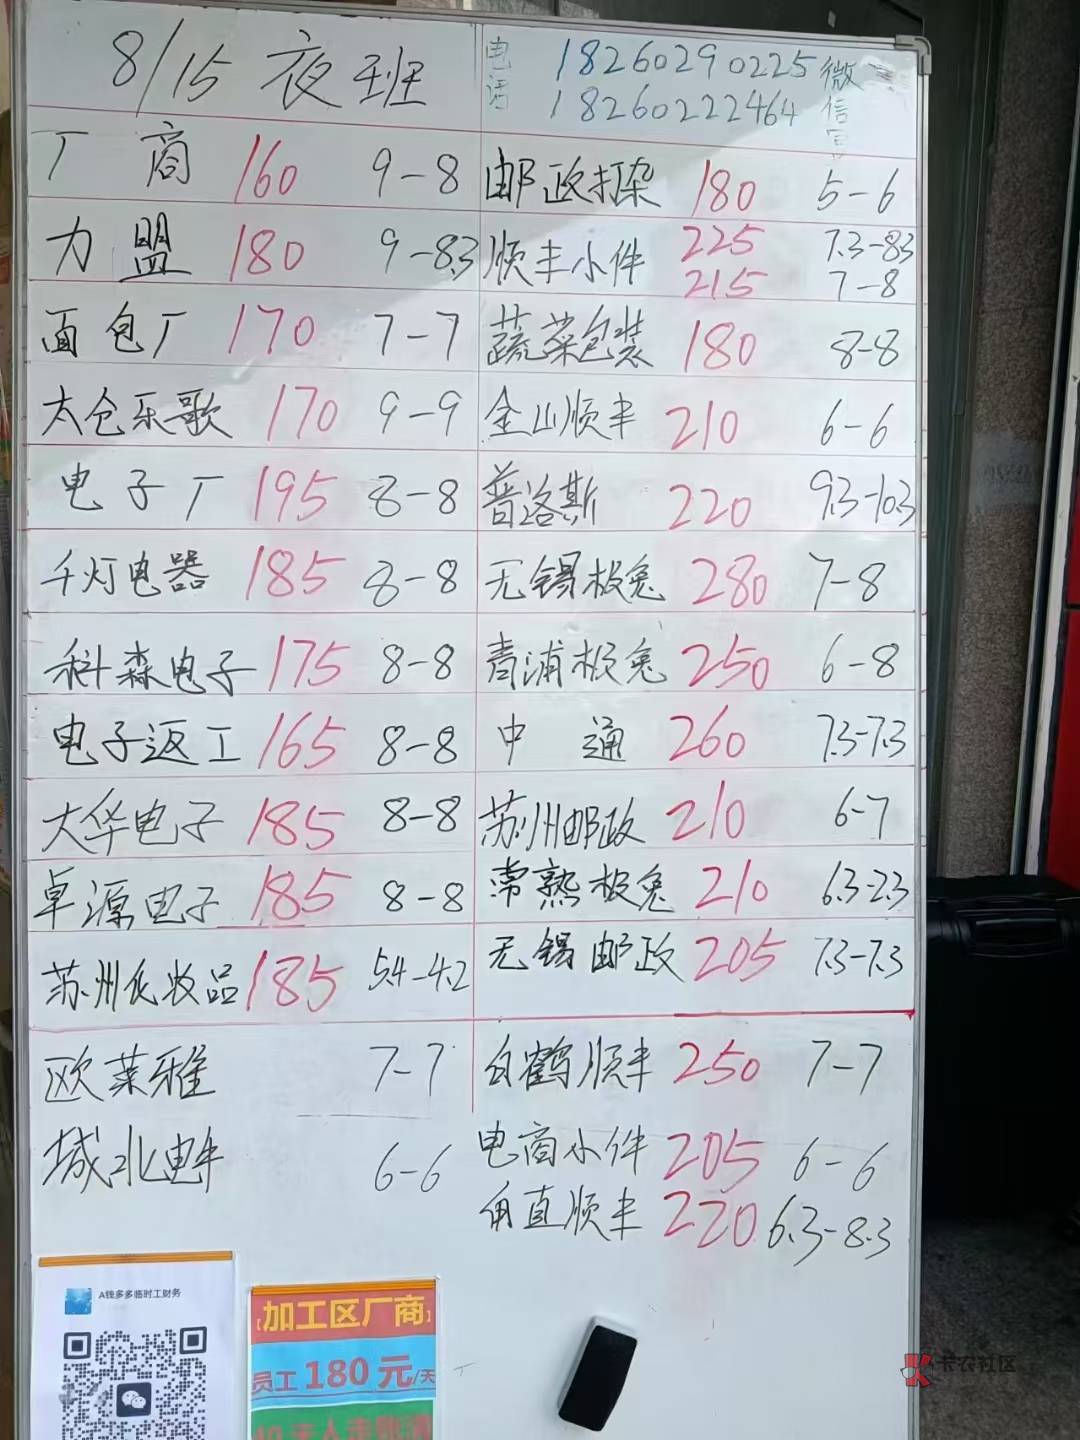 8/15 夜班
电话 18260290225 微信同
18260222464
厂商 160 9-8
力盟 180 9-8.3
面包厂 170 7-7
太仓乐歌 170 9-9
电子厂 195 8-8
千灯电器 185 8-8
科森电子 175 8-8
电子返工 165 8-8
大华电子 185 8-8
卓源电子 185 8-8
苏州化妆品 185 5.4-4.2
欧莱雅 7-7
城北 6-6
邮政打染 180 5-6
顺丰小件 225 7.3-8.3
215 7-8
蔬菜包装 180 8-8
金山顺丰 210 6-6
普洛斯 220 9.3-10.3
无锡极兔 280 7-8
青浦极兔 250 6-8
中通 260 7.3-7.3
苏州邮政 210 6-7
常熟极兔 210 6.3-2.3
无锡邮政 205 7.3-7.3
白鹤顺丰 250 7-7
电商小件 205 6-6
甪直顺丰 220 6.3-8.3
A钱多多临时工财务
【加工区厂商】
员工180元/天
卡农社区